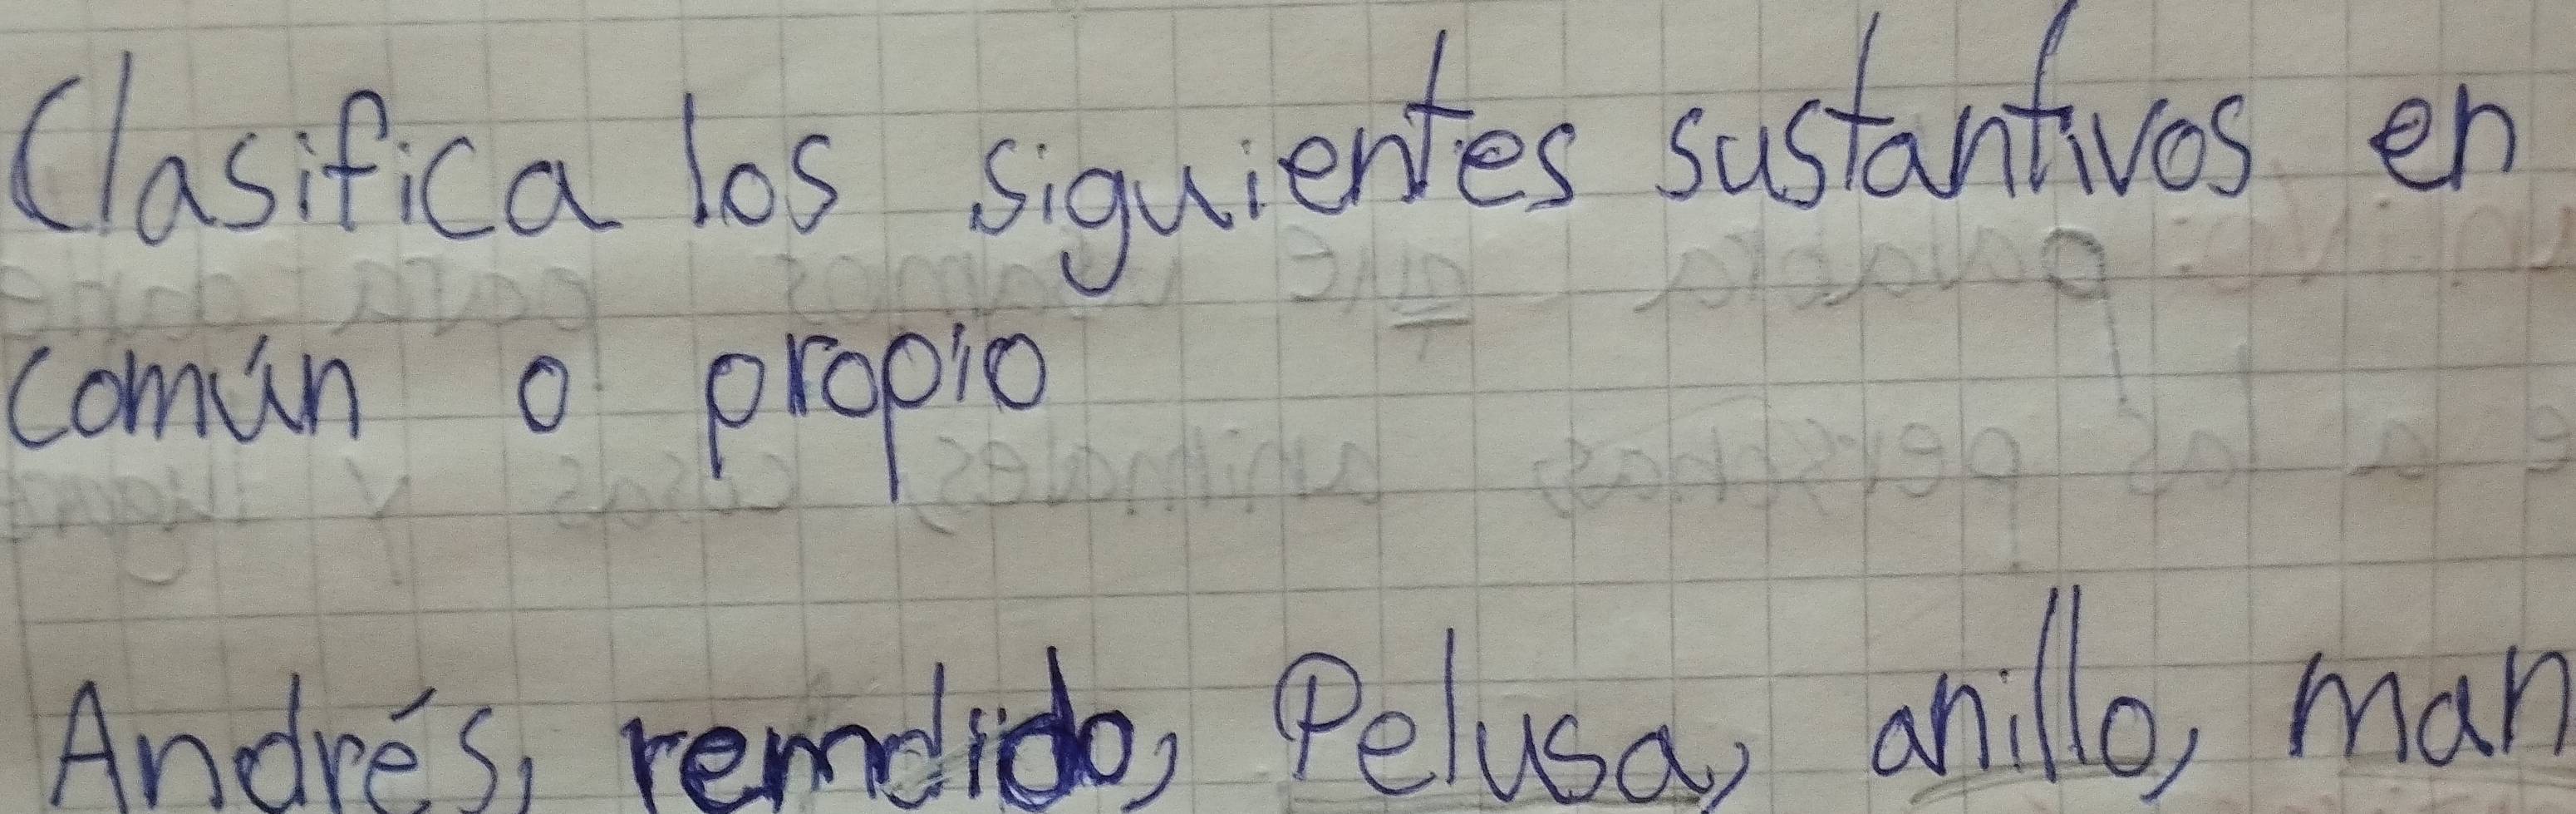 Clasifica los siguientes sustantivos en
común o propio
Andrés, Pelusa, anillo, man